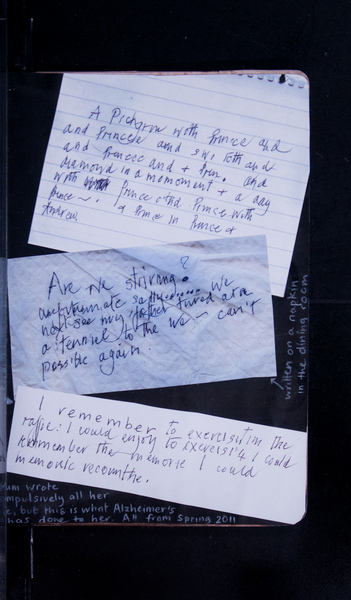 A Pichgrow with Prince and
and Princess and swi Toth and
and Princess and + Pren. and
diamond in a momoment + a day
with Prince + the Prince with
Prince ~. + a Prince in Prince +
Andrew
Are we striving ?
unfortunate sally we
not see my father tured at a
a tennis to the we — can't
possible again.
written on a napkin
in the dining room
I remember to exercisitim the
raffie. I could enjoy to exercisi4 I could
remember the memorie I could
memoric recounthe.
um wrote
ompulsively all her
e, but this is what Alzheimer's
has done to her. All from Spring 2011